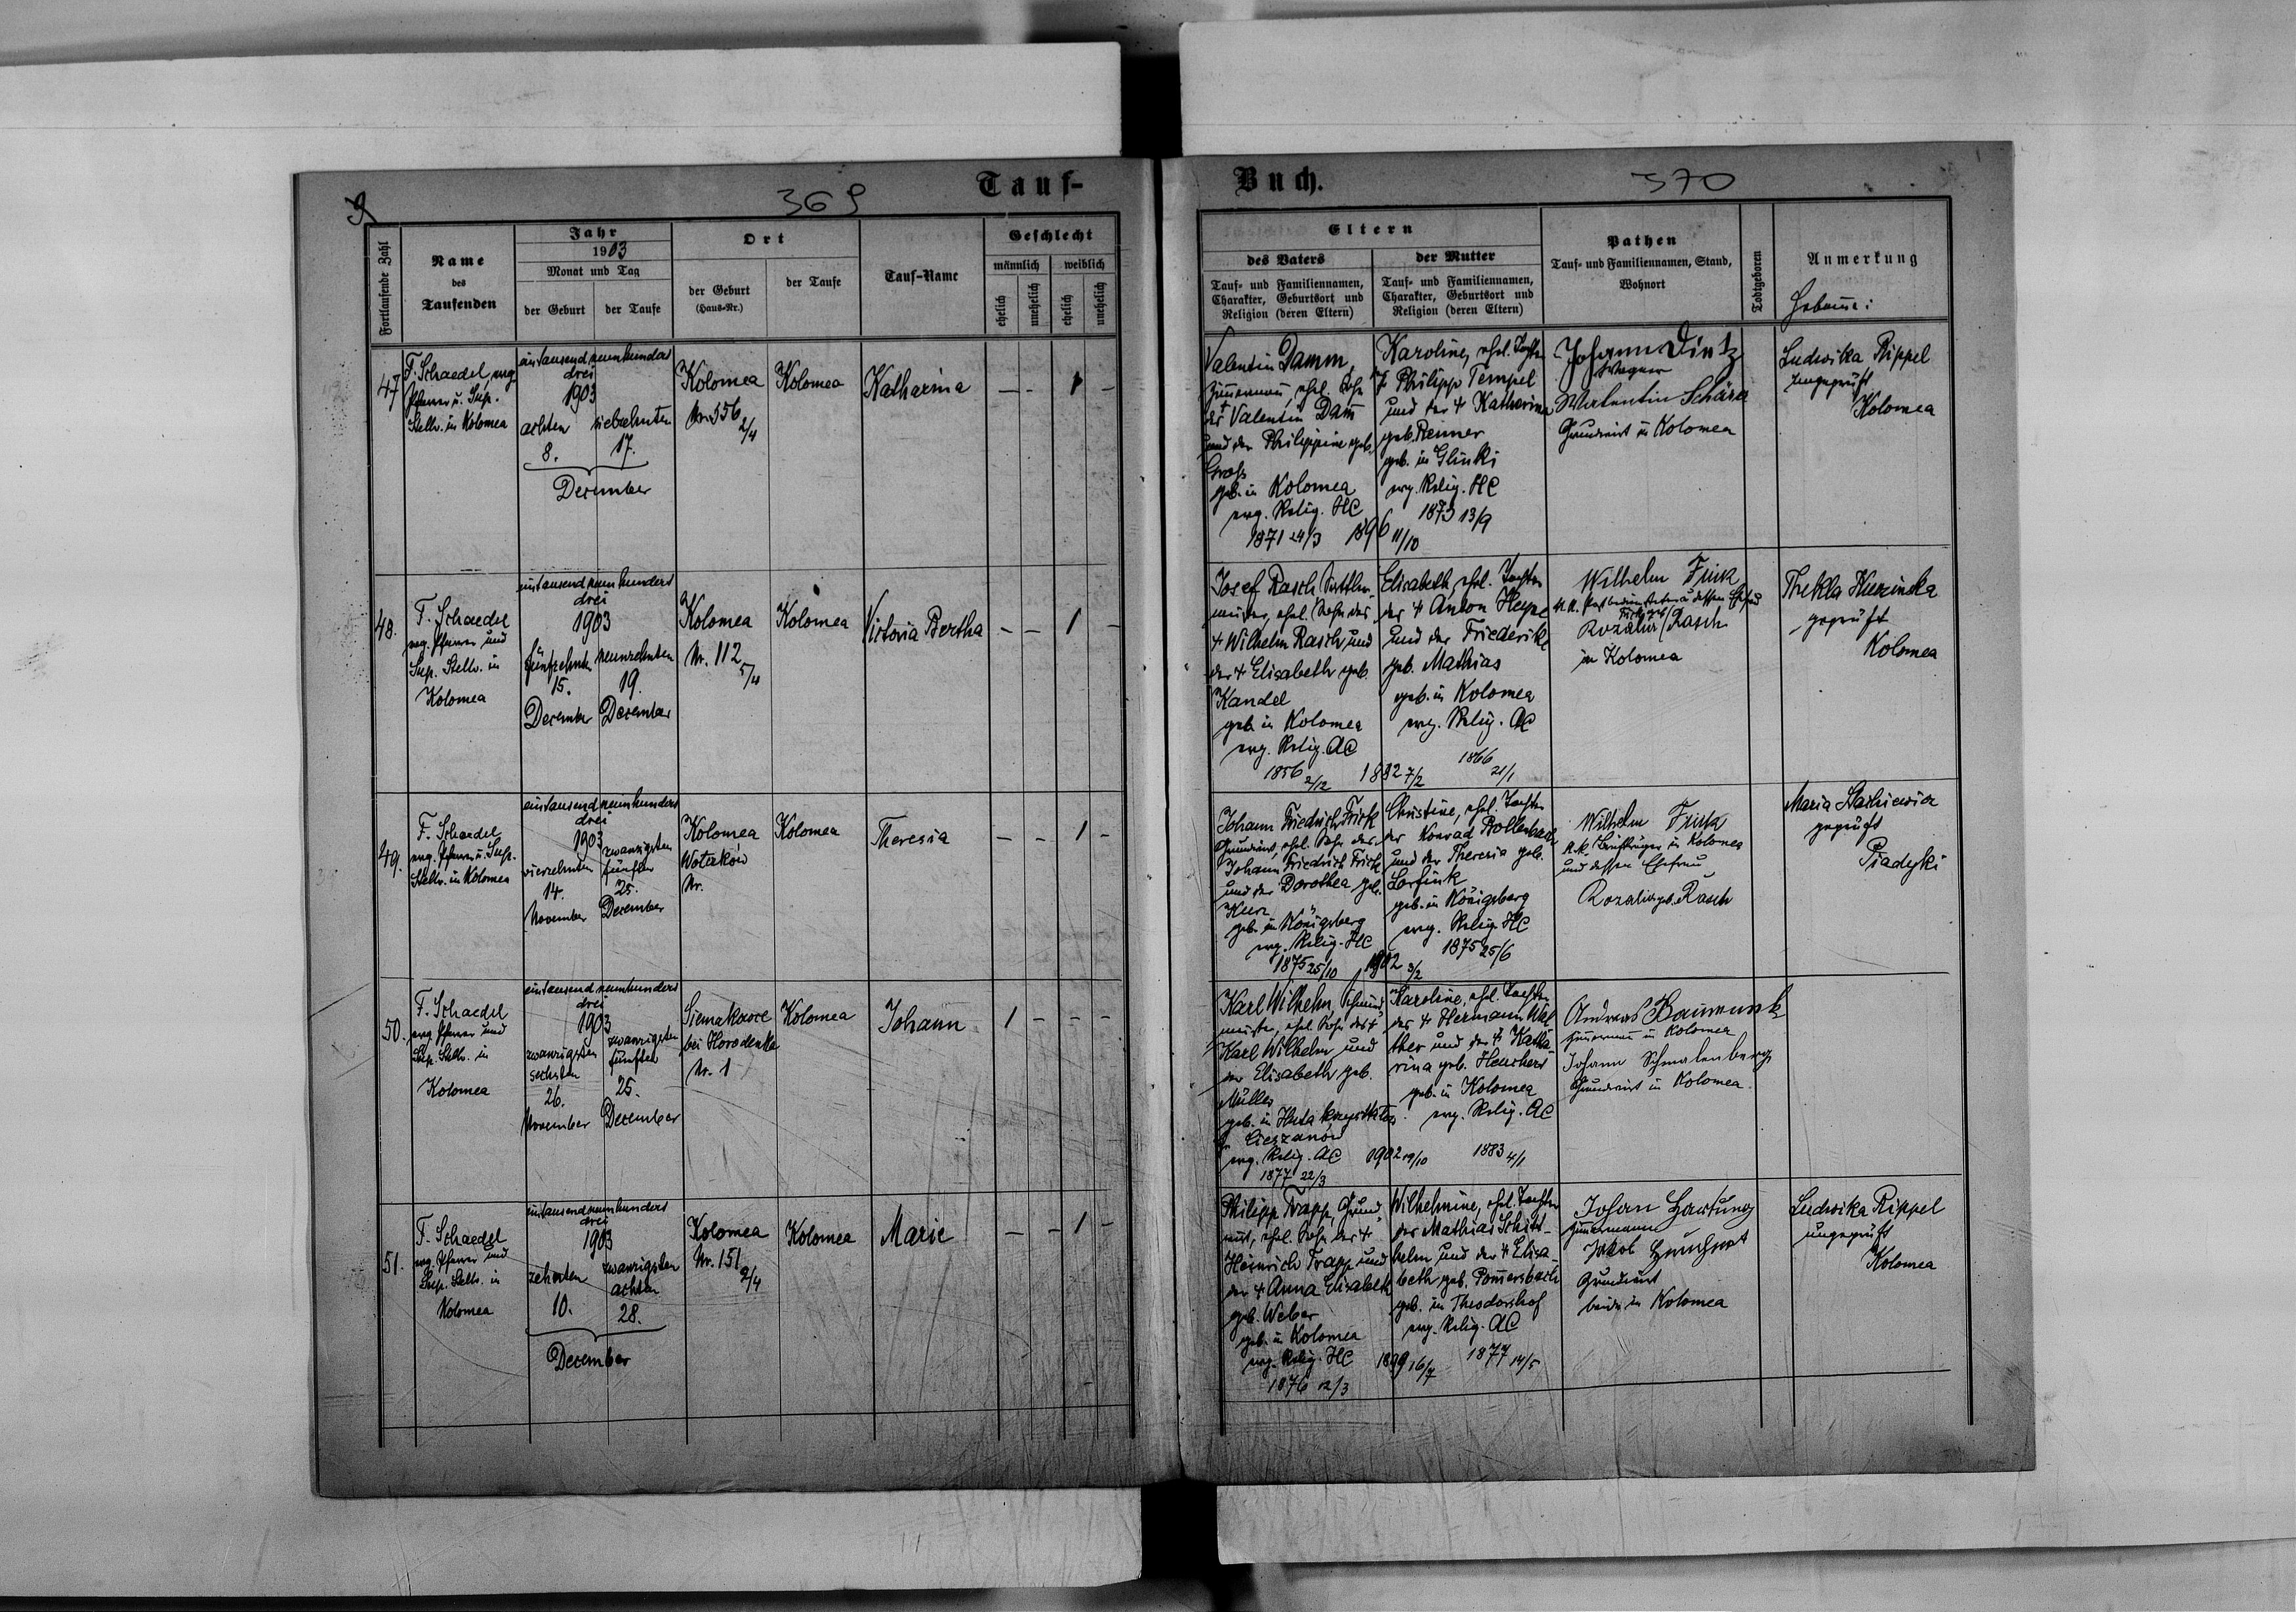 369
Tauf-
Buch.
370
Fortlaufende Zahl
Name
des
Taufenden
Jahr
1903
Monat und Tag
der Geburt
der Taufe
Ort
der Geburt
(Haus-Nr.)
der Taufe
Tauf-Name
Geschlecht
männlich
weiblich
ehelich
unehelich
ehelich
unehelich
Eltern
des Vaters
Tauf- und Familiennamen,
Charakter, Geburtsort und
Religion (deren Eltern)
der Mutter
Tauf- und Familiennamen,
Charakter, Geburtsort und
Religion (deren Eltern)
Pathen
Tauf- und Familiennamen, Stand,
Wohnort
Todtgeboren
Anmerkung
47
F. Schaedel, evg
Pfarrer u. Sup.
Stellv. in Kolomea
eintausend neunhundert
drei
1903
achten
8.
siebzehnten
17.
December
Kolomea
Nr. 556
2/4
Kolomea
Katharina
— - 1 -
Valentin Damm,
Zimmermann, ehel. Sohn
des Valentin Dam̄
und der Philippine geb.
Gross
geb. in Kolomea
evg. Relig. HC
1871 24/3
1896 11/10
Karoline, ehel. Tochter
Philipp Tempel
und der + Katharina
geb. Renner
geb. in Glinki
evg. Relig. HC
1873 13/9
Johann Dietz
Wagner
Walentin Schära
Grundwirt in Kolomea
Ludwika Rippel
ungeprüft
Kolomea
48.
F. Schaedel
evg. Pfarrer und
Sup. Stellv. in
Kolomea
eintausend neunhundert
drei
1903
fünfzehnten
15.
December
neunzehnten
19.
December
Kolomea
Nr. 112
5/4
Kolomea
Victoria Bertha
- - 1 -
Josef Rasch, Sattler-
meister, ehel. Sohn des
+ Wilhelm Rasch und
der + Elisabeth geb.
Kandel
geb. in Kolomea
evg. Relig. AC
1856 2/12
1882 7/2
Elisabeth, ehel. Tochter
der + Anton Heyne
und der Friederike
geb. Mathias
geb. in Kolomea
evg. Relig. AC
1866 21/1
Wilhelm Frick
Rozalia Rasch
in Kolomea
Thekla Kuzinska
geprüft
Kolomea
49.
F. Schaedel
evg. Pfarrer u. Sup.
Stellv. in Kolomea
eintausend neunhundert
drei
1903
vierzehnten
14.
November
zwanzigsten
fünften
25.
December
Kolomea
Woterków
Nr.
Kolomea
Theresia
- - 1 -
Johann Friedrich Frick
Grundwirt, ehel. Sohn des
Johann Friedrich Frick
und der Dorothea geb.
Kurz
geb. in Königsberg
evg. Relig. HC
1875 25/10
1902 3/2
Christine, ehel. Tochter
der Konrad Bollenbach
und der Theresia geb.
Lorfink
geb. in Königsberg
evg. Relig. HC
1875 25/6
Wilhelm Frick
k.k. Briefträger in Kolomea
und dessen Ehefrau
Rozalia geb. Rasch
Maria Stachiewicz
geprüft
Piadyki
50.
F. Schaedel
evg. Pfarrer und
Sup. Stellv. in
Kolomea
eintausend neunhundert
drei
1903
zwanzigsten
sechsten
26.
November
zwanzigsten
fünften
25.
December
Siemakowce
bei Horodenka
Nr. 1
Kolomea
Johann
1 - - -
Karl Wilhelm, Schmied-
meister, ehel. Sohn des +
Karl Wilhelm und
der Elisabeth geb.
Müller
geb. in Huta
Cieszanów
evg. Relig. AC
1877 22/3
1902 19/10
Karoline, ehel. Tochter
des + Hermann Wal
ther und der + Katha-
rina geb. Heuchert
geb. in Kolomea
evg. Relig. AC
1883 4/1
Andreas Baumunk
Zimmermann in Kolomea
Johann Schmalenberg
Grundwirt in Kolomea.
51.
F. Schaedel
evg. Pfarrer und
Sup. Stellv. in
Kolomea
eintausend neunhundert
drei
1903
zehnten
10.
zwanzigsten
achten
28.
December
Kolomea
Nr. 151
2/4
Kolomea
Marie
- - 1 -
Philipp Trapp, Grund-
wirt, ehel. Sohn der +
Heinrich Trapp und
der + Anna Elisabeth
geb. Weber
geb. in Kolomea
evg. Relig. HC
1876 12/3
1899 16/7
Wilhelmine, ehel. Tochter
der Mathias Schitt-
helm und der + Elisa-
beth geb. Pom̄ersbach
geb. in Theodorshof
evg. Relig. AC
1877 14/5
Johan Hartung
Zimmermann
Jakob
Grundwirt
beide in Kolomea
Ludwika Rippel
ungeprüft
Kolomea